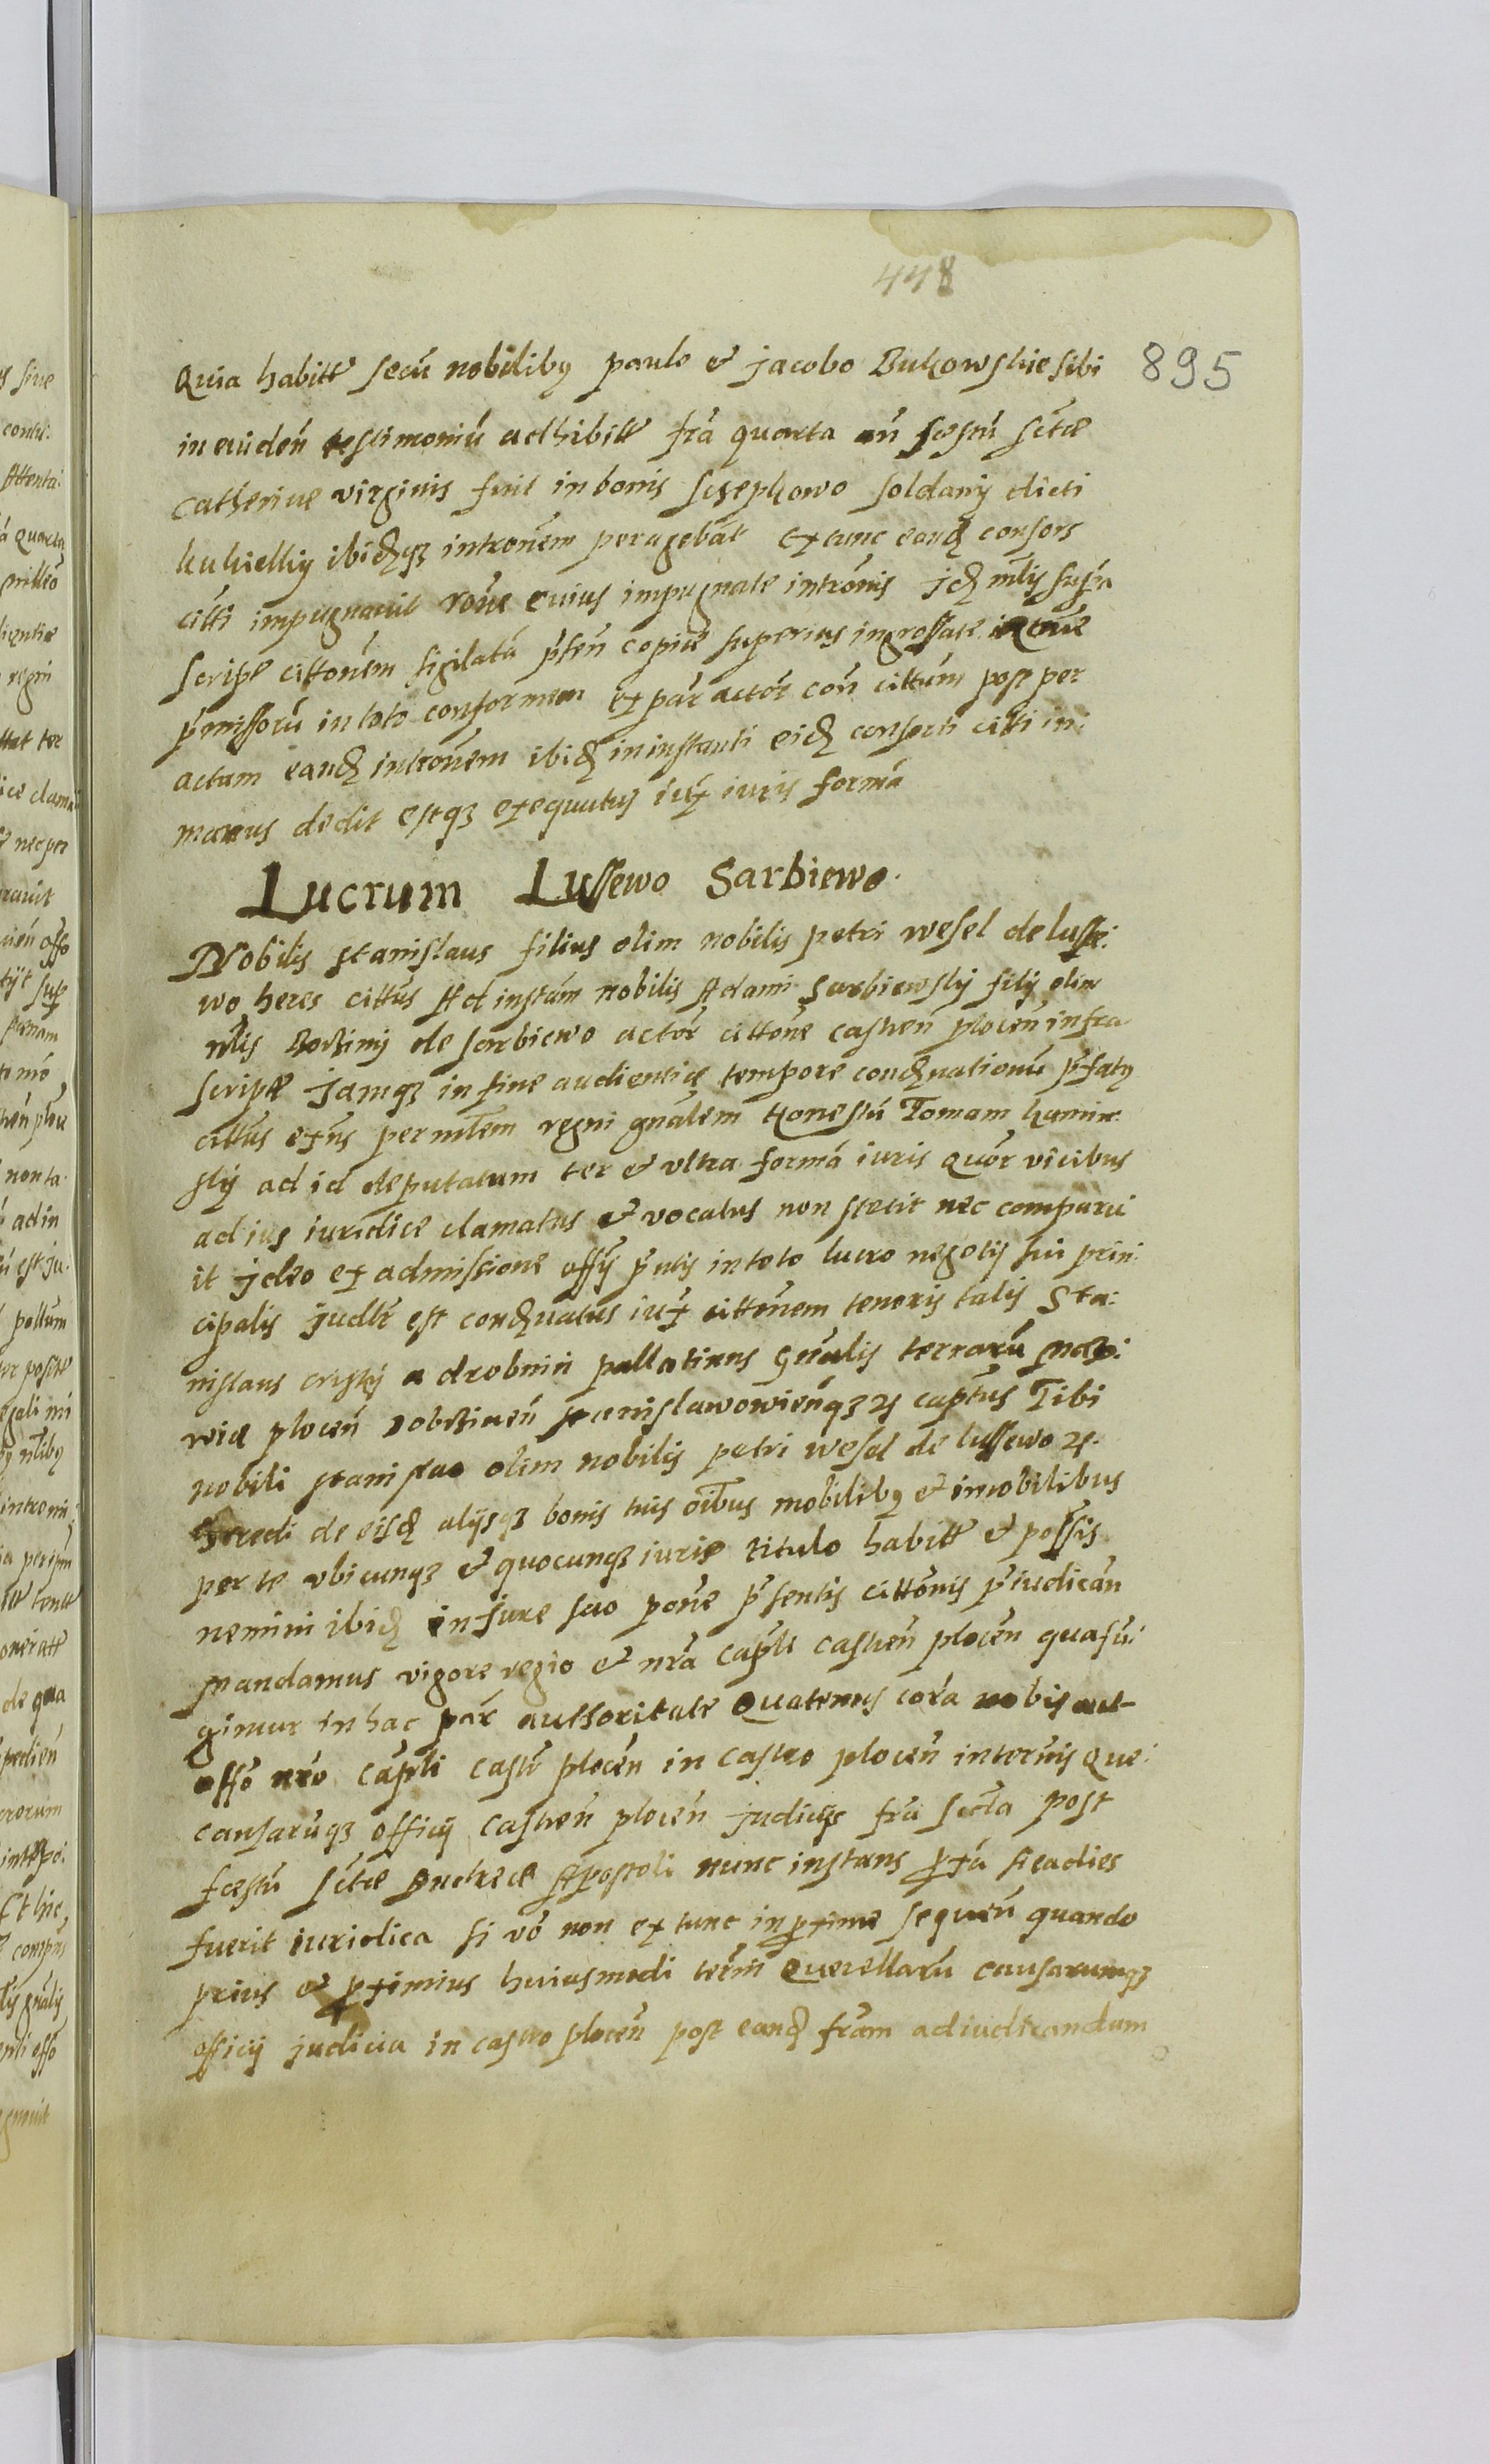 448
895
Quia habitt secū nobilibq paulo et jacobo Bukowskie sibi
in euideń testimoniū adhibitt fra quarta añ festū sctæ
Catherine virginis fuit in bonis Sczepkowo soldanij dicti
kukielky ibidqз intronem peragebat Ex tunc eand consors
citti impugnauit rone cuius impugnate intronis jd mtis supra
script cittonem sigilatā pnsen copiæ superius ingrossate
pmissorū in toto conformem ex par actor con cittum post per
actam eand intronem ibid in instanti eid consorti citti in:
manus dedit estqз exequutus iux iuris formā
Lucrum Lussewo Sarbiewo.
Nobilis stanislaus filius olim nobilis petri wesel de lusse:
wo heres cittus Ad instām nobilis Adami Sarbiewsky filij olim
nlis de sarbiewo actor cittone castreń ploceń infra
script jamqз in fine audientiæ tempore condnationū pfatq
cittus exns per mltem regni gnalem Honestū Tomam kamin:
sky ad id deputatum ter et vltra formā iuris quor vicibus
ad ius iuridice clamatus et vocatus non stetit nec comparu
it jdeo ex admissione offij pntis in toto lucro negotij sui prin:
cipalis judltr est condnatus iux cittonem tenoris talis Sta:
nislaus crisky a drobnin pallatinus Gnalis terrarū mazo:
wiæ ploceń dobrzineń stanislawowieńqз ꝛc captus Tibi
nobili stanislao olim nobilis petri wesel de lussewo ꝛc.
Heredi de eisd alijsqз bonis tuis oibus mobilibq et imobilibus
per te vbicunqз et quocunqз iuris titulo habitt et possis
nemini ibid in jure suo pone psentis cittonis piudican
mandamus vigore regio et nra capli castreń ploceń qua fun
gimur in hac par authoritate Quatenus corā nobis aut
offo nro capli castr ploceń in castro ploceń in ternis que:
causarūqз officij castreń ploceń judicijs fra secda post
festū sctæ Andreæ Apostoli nunc instans pxa si ea dies
fuerit iuridica si vo non ex tunc in pxime sequeń quando
prius et pximius huiusmodi termi Querellarū causarumqз
officij judicia in castro ploceń post eand fram adiudicandum